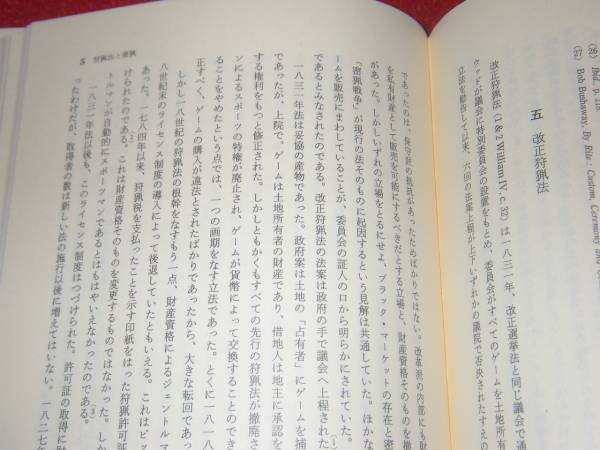 (26) Ibid., p. 218.
(27) Bob Bushaway, By Rite: Custom, Ceremony and
五 改正狩猟法
改正狩猟法(1 & 2 William IV, c. 32)は一八三一年、改正選挙法と同じ議会で
ウッドが議会に特別委員会の設置をもとめ、委員会がすべてのゲームを土地所有
立法を勧告して以来、六回の法案上程が上下いずれかの議院で否決されたすえの
であったのは、保守派の抵抗があったためばかりではない。改革派の内部にも財
を私有財産として販売を可能にするべきだとする立場と、財産資格そのものを撤
があった。しかしいずれの立場をとるにせよ、ブラック・マーケットの存在と密
「密猟戦争」が現行の法そのものに起因するという見解は共通していた。ほかな
ームを販売にまわしていることが、委員会の証人の口から明らかにされていた。
とみなされたのである。改正狩猟法の法案は政府の手で議会へ上程された(1)
一八三一年法は妥協の産物であった。政府案は土地の「占有者」にゲームを捕
であったが、上院で、ゲームは土地所有者の財産であり、借地人は地主に承認を
する権利をもつと修正された。しかしともかくもすべての先行の狩猟法が撤廃さ
ンによるスポーツの特権が廃止され、ゲームが貨幣によって交換することのでき
ることをやめたという点では、一つの画期をなす立法であった。とくに一八一八
正すべく、ゲームの購入が違法とされたばかりであったから、大きな転回であっ
しかし一八世紀の狩猟法の根幹をなすもう一点、財産資格によるジェントルマ
八世紀末のライセンス制度の導入によって後退していたともいえる。これはピッ
あった。一七八四年以来、狩猟税を支払ったことを示す印紙をはった狩猟許可証
けられたのである。これは財産資格そのものを変更するものではなかった。しか
トルマンが自動的にスポーツマンであるとはもはやいえなかったのである。(3)
一八三一年法以後も、このライセンス制度はつづけられた。許可証の取得に財
ったわけだが、取得者の数は新しい法の施行以後に増えてはいない。一八二七年
5 狩猟法と密猟